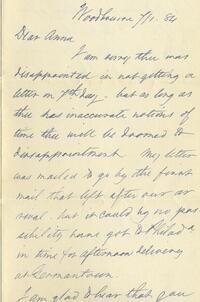 Woodbourne 7/1. 84
Dear Anna
I am sorry thee was
disappointed in not getting a
letter on 7th day - but as long as
thee has inaccurate notions of
time thee will be doomed to
disappointment. My letter
was mailed to go by the first
mail that left after our ar
rival. but it could by no pos
sibility have got to Philada
in time for afternoon delivery
at Germantown.
I am glad to hear that you